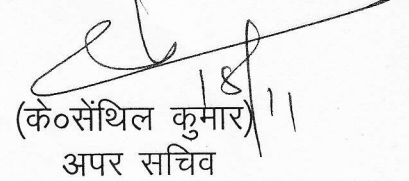 18/11
(के०सेंथिल कुमार)
अपर सचिव